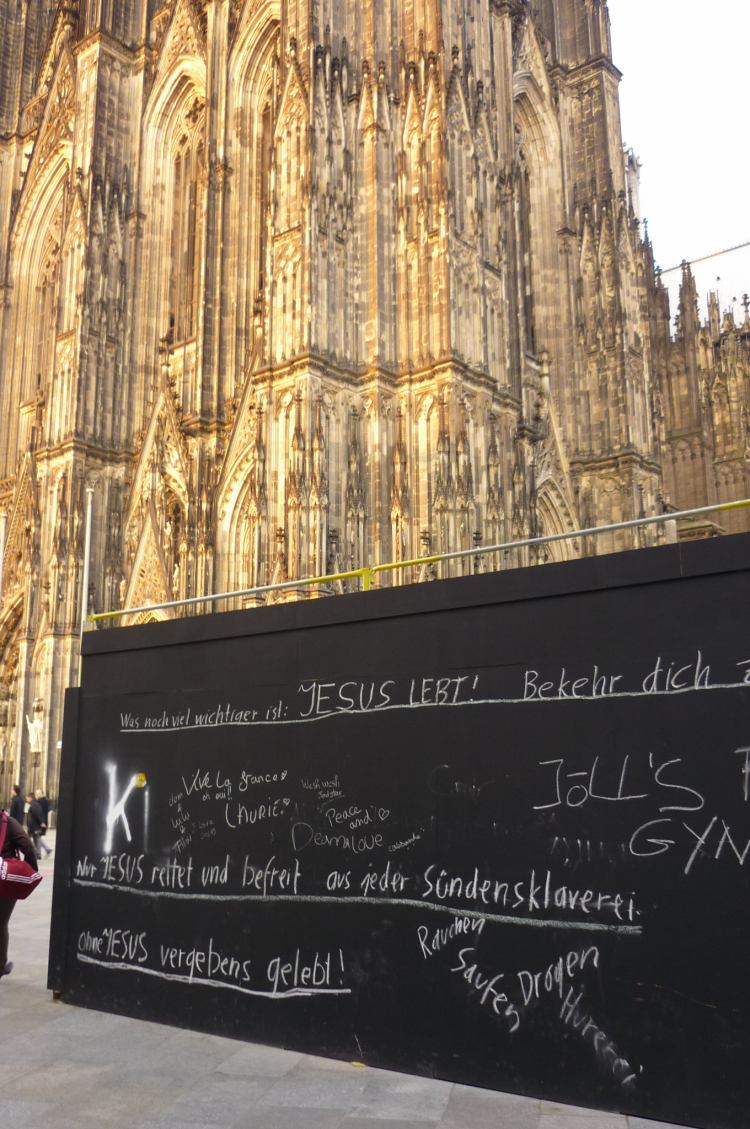 Was noch viel wichtiger ist: JESUS LEBT! Bekehr dich
Vive La france
oh oui!!
LAURIE
Wesh wesh
Peace
and
Deamalove
Ki
JōLL'S
GYN
Nur JESUS rettet und befreit aus jeder Sündensklaverei.
Ohne JESUS vergebens gelebt!
Rauchen
Saufen
Drogen
Hurerei